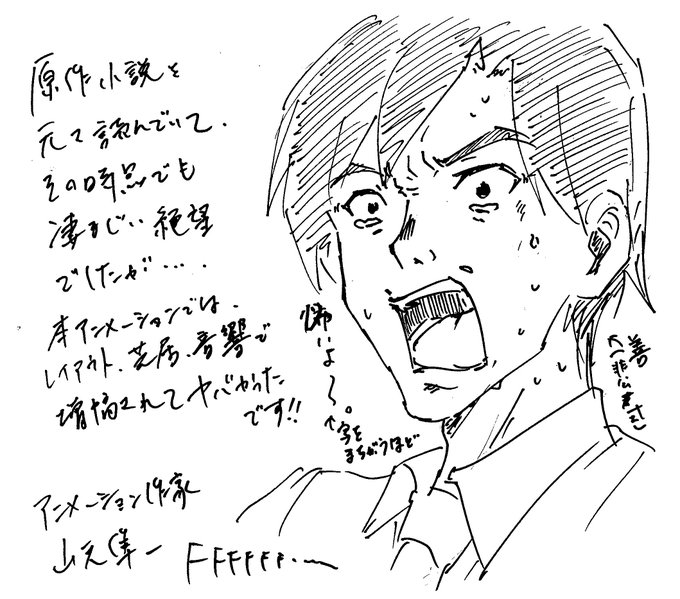 原作小説を
元々読んでいて、
その時点でも
凄まじい絶望
でしたが…、
本アニメーションでは、
レイアウト、芝居、音響で
増幅されてヤバかった
です!!
怖いよ〜。
↑字を
まちがうほど
善
(非公式)
アニメーション作家
山元隼一
FFFFFF…